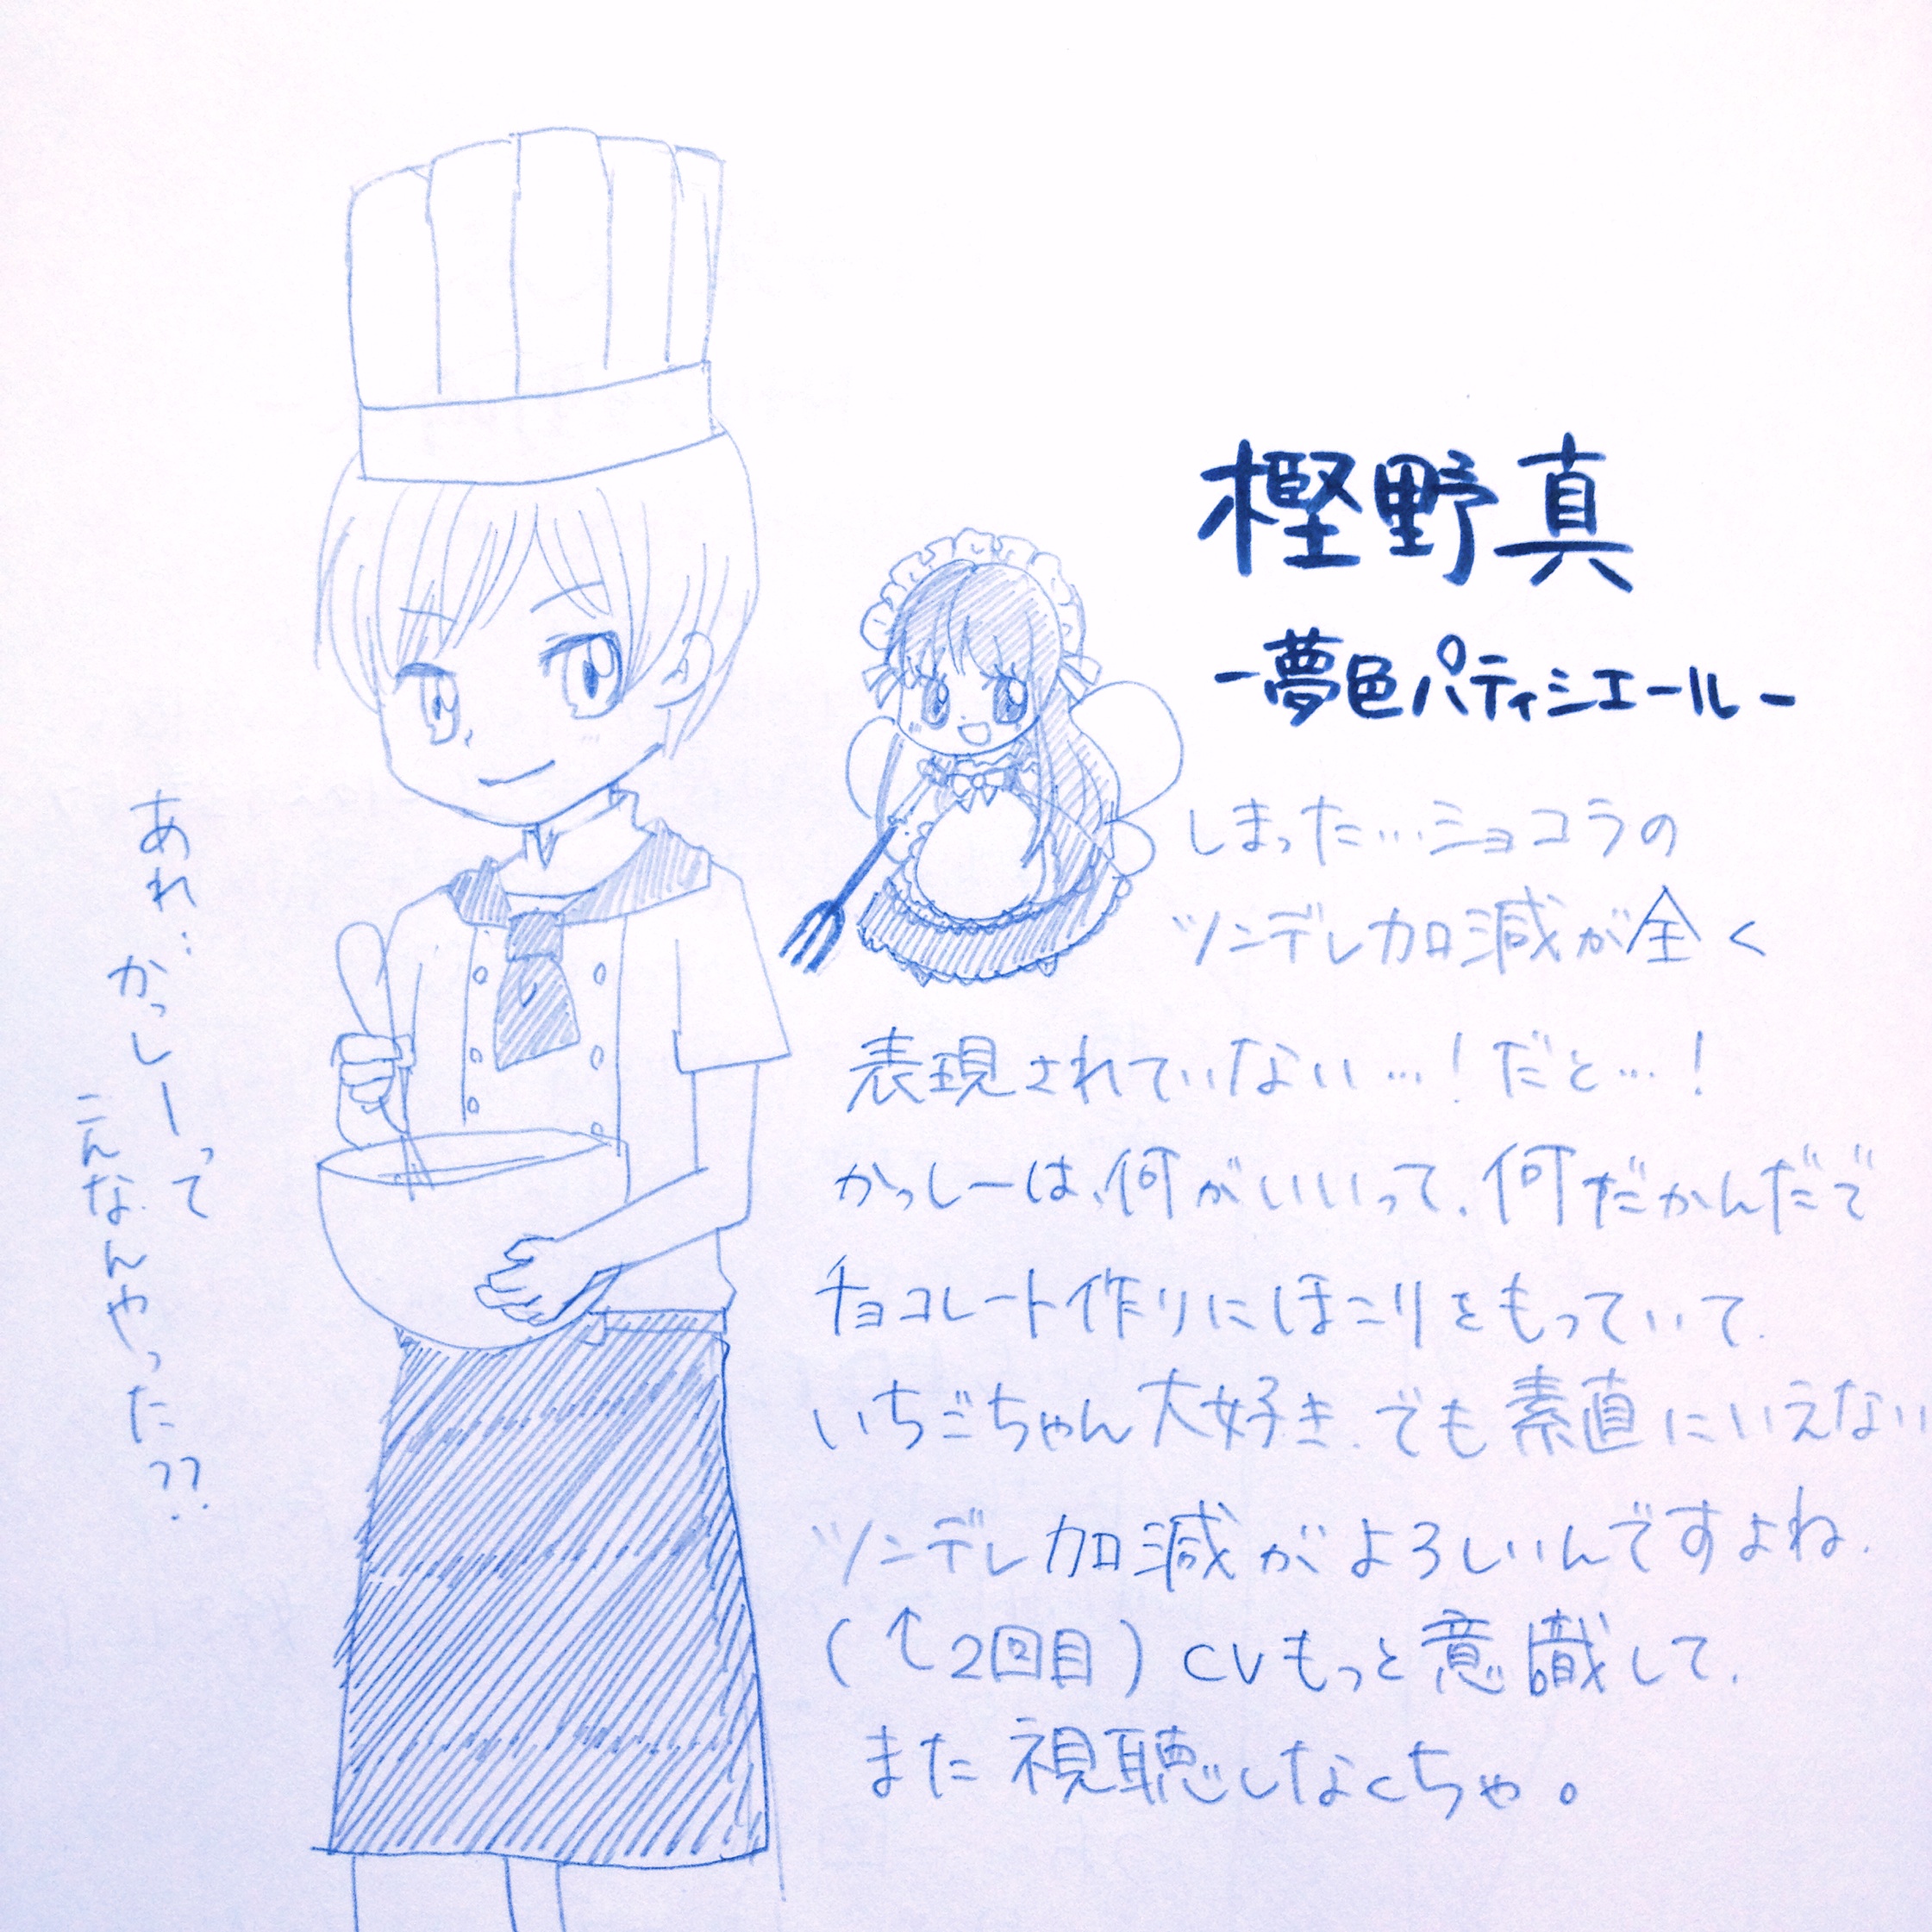 樫野真
-夢色パティシエール-
しまった…ショコラの
ツンデレ加減が全く
表現されていない…！だと…！
かっしーは、何がいいって、何だかんだで
チョコレート作りにほこりをもっていて、
いちごちゃん大好き、でも素直にいえない
ツンデレ加減がよろしいんですよね、
(↑2回目) CVもっと意識して、
また視聴しなくちゃ。
あれ…かっしーって
こんなんやった??